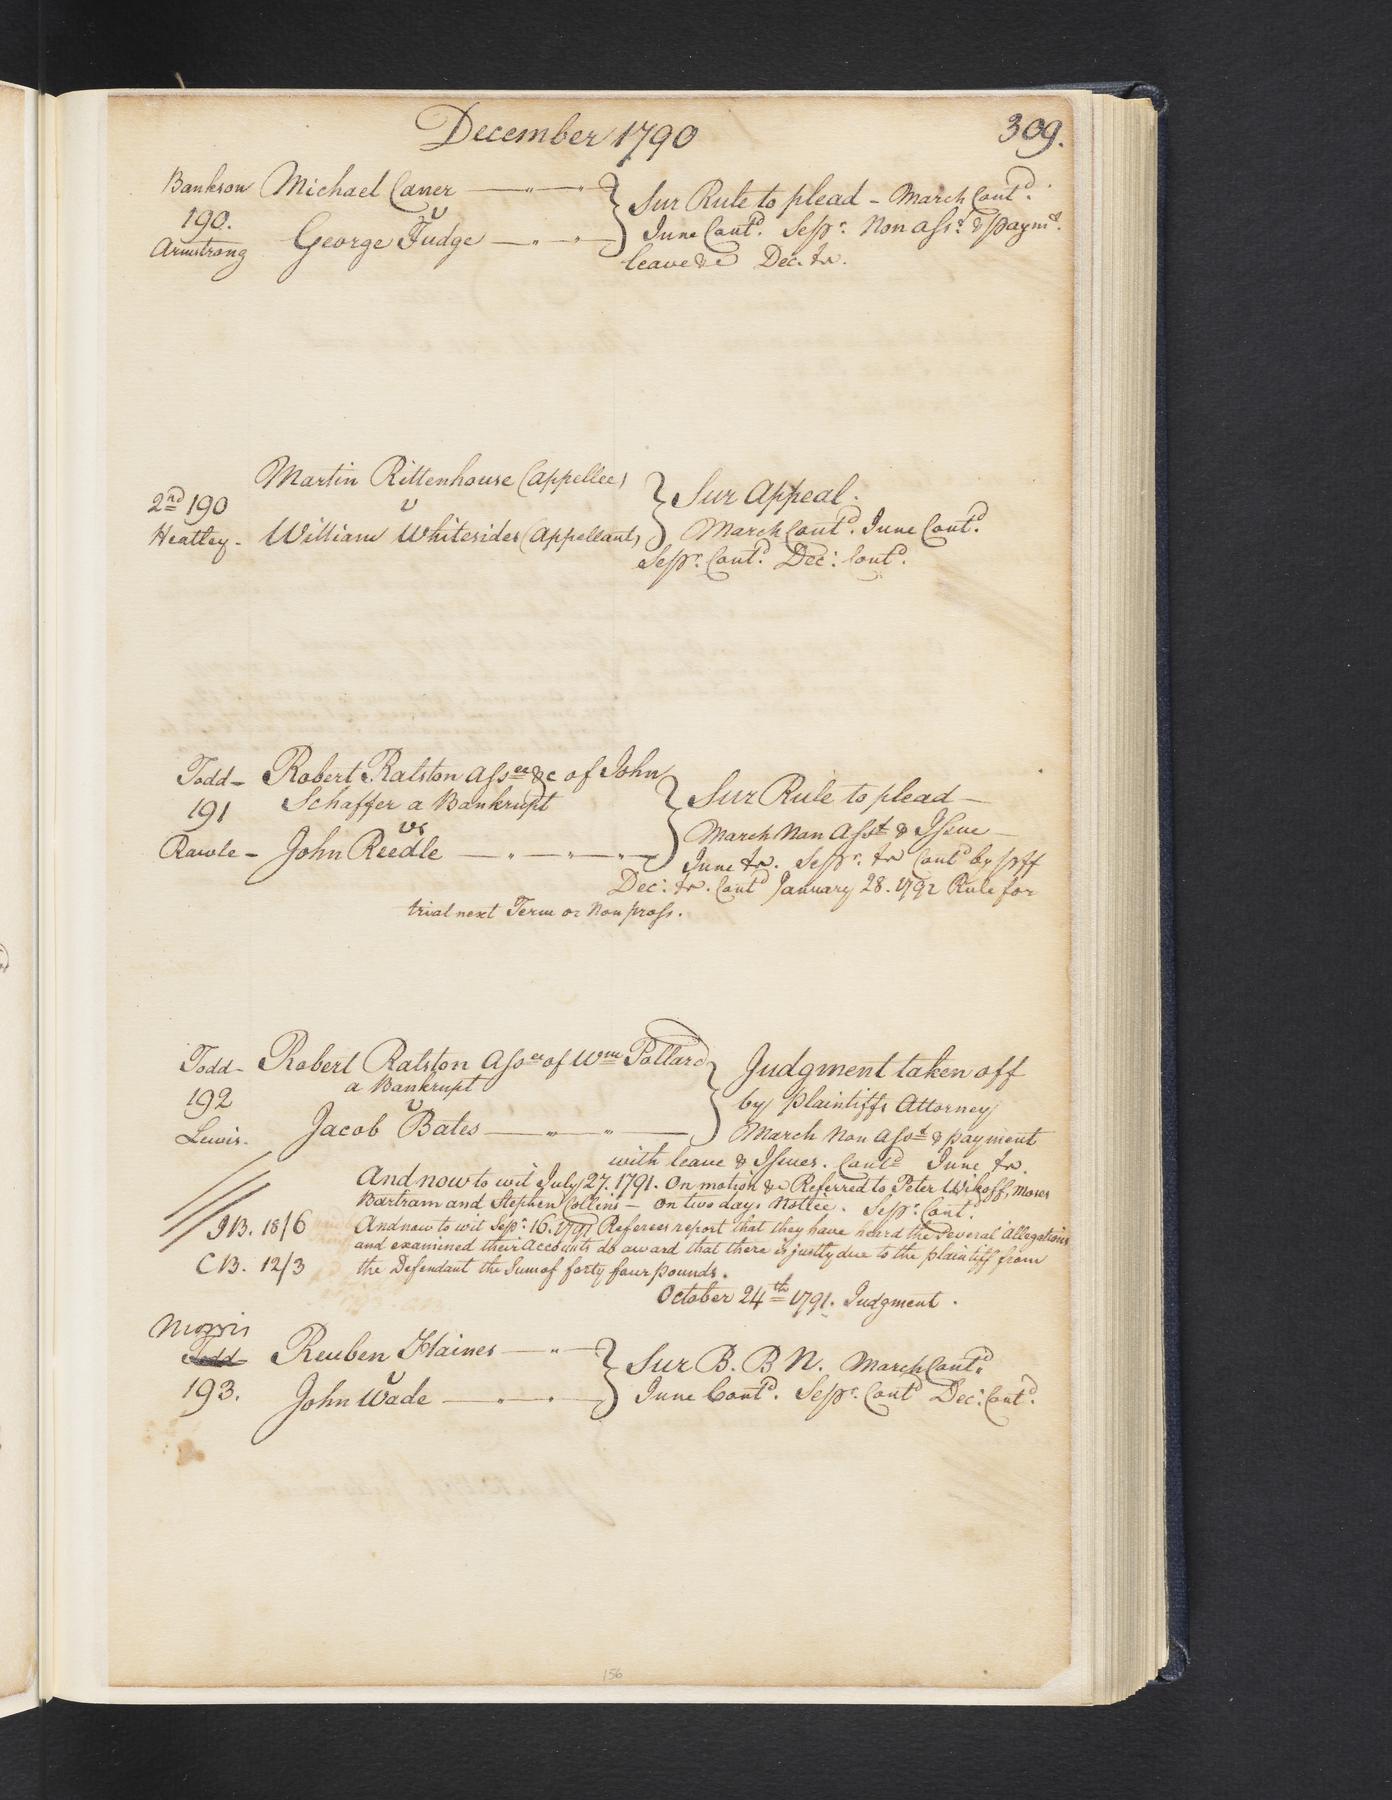 December 1790
309.
Bankson Michael Caner
v
190.
Armstrong George Fudge
Sur Rule to plead - March Contd.
June Contd. Sepr. Non Asst. & paymt.
leave &c Dec. tr.
Martin Rittenhouse (appellee)
v
2nd 190
Heatley - William Whitesides (Appellant)
Sur Appeal.
March Contd. June Contd.
Sepr. Contd. Dec: Contd.
Todd - Robert Ralston Assee &c of John
191 Schaffer a Bankrupt
vs
Rawle - John Reedle
Sur Rule to plead -
March Non Asst & Issue -
June tr. Sepr. tr Contd by pff
Dec: tr. Contd January 28. 1792 Rule for
trial next Term or Non pross.
Todd - Robert Ralston Assee of Wm Pollard
a Bankrupt
192 v
Lewis. Jacob Bates
Judgment taken off
by Plaintiffs Attorney
March Non Asst & payment
with leave & Issues. Contd June tr.
And now to wit July 27. 1791. On motion &c Referred to Peter Wikoff, Moses
Bartram and Stephen Collins - on two days Notice. Sepr. Cont.
JB. 18/6 And now to wit Sepr. 16. 1791 Referees report that they have heard the several Allegations
and examined their Accounts do award that there is justly due to the plaintiff from
CB. 12/3 the Defendant the Sum of forty four pounds.
October 24th 1791. Judgment.
Morris
Todd - Reuben Haines
v
193. John Wade
Sur B. B N. March Contd.
June Contd. Sepr. Contd Dec: Contd.
156